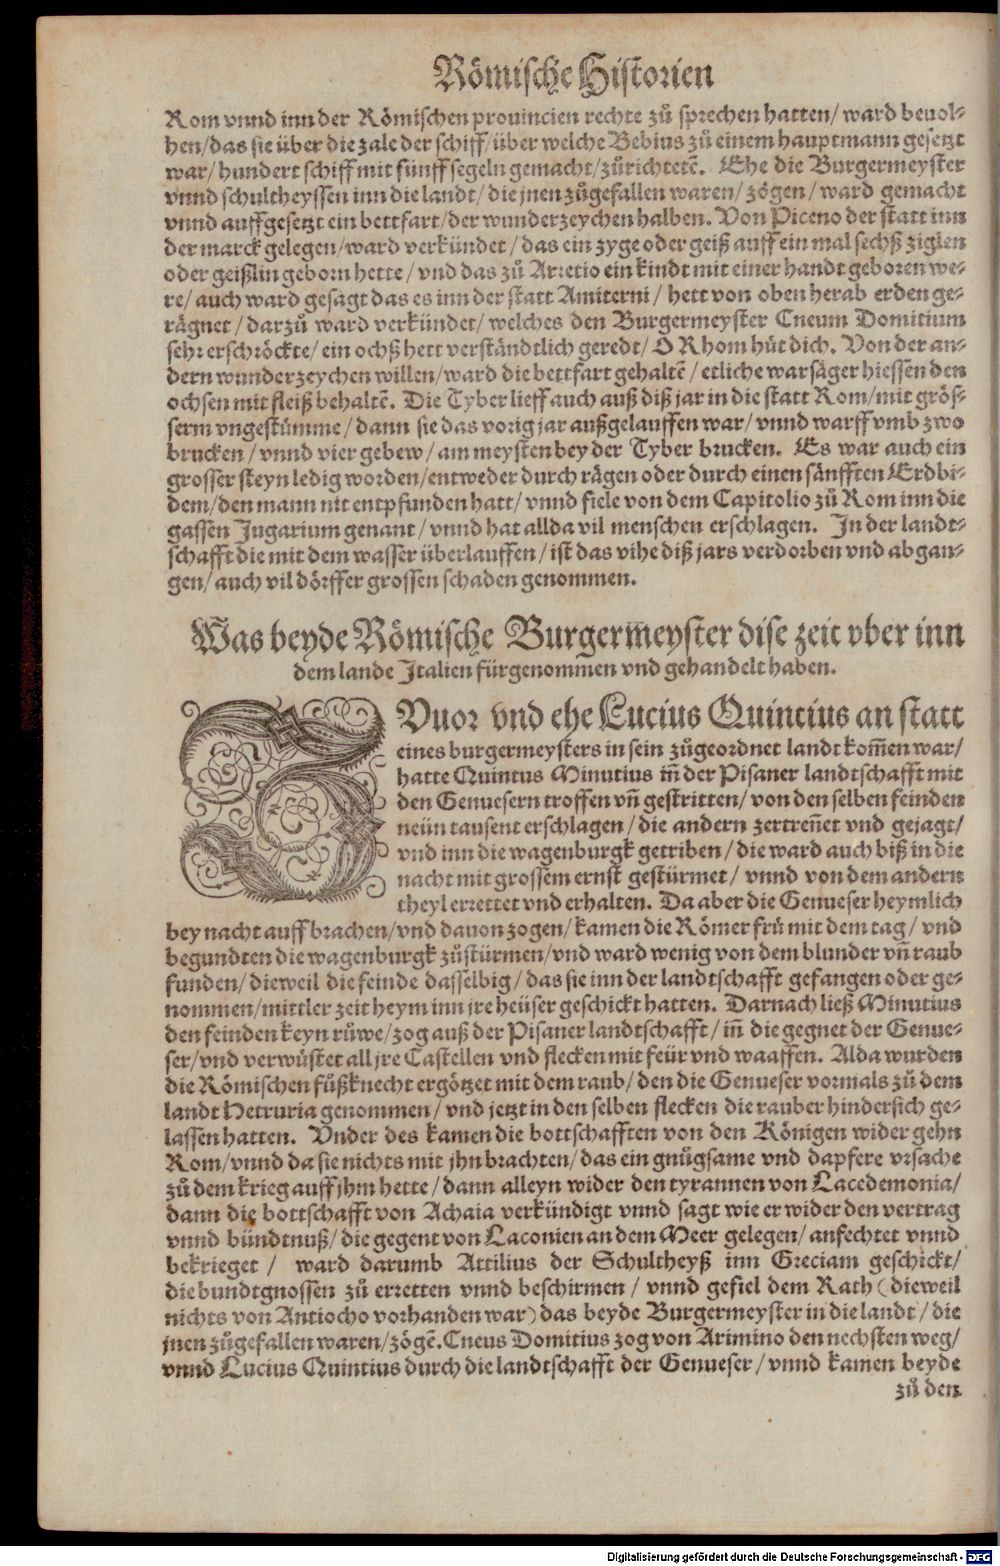 Römische Historien
Rom vnnd inn der Römischen prouincien rechte zů sprechen hatten/ ward beuol⸗
hen/ das sie über die zale der schiff/ über welche Bebius zů einem hauptmann gesetzt
war/ hundert schiff mit fünff segeln gemacht/ zůrichtetẽ. Ehe die Burgermeyster
vnnd schultheyssen inn die landt/ die jnen zůgefallen waren/ zögen/ ward gemacht
vnnd auffgesetzt ein bettfart/ der wunderzeychen halben. Von Piceno der statt inn
der marck gelegen/ ward verkündet/ das ein zyge oder geiß auff ein mal sechß ziglen
oder geißlin geborn hette/ vnd das zů Arretio ein kindt mit einer handt geboren we⸗
re/ auch ward gesagt das es inn der statt Amiterni/ hett von oben herab erden ge⸗
rägnet/ darzů ward verkündet/ welches den Burgermeyster Cneum Domitium
sehr erschröckte/ ein ochß hett verständtlich geredt/ O Rhom hüt dich. Von der an⸗
dern wunderzeychen willen/ ward die bettfart gehaltẽ/ etliche warsäger hiessen den
ochsen mit fleiß behaltẽ. Die Tyber lieff auch auß diß jar in die statt Rom/ mit grös⸗
serm vngestümme/ dann sie das vorig jar außgelauffen war/ vnnd warff vmb zwo
brucken/ vnnd vier gebew/ am meysten bey der Tyber brucken. Es war auch ein
grosser steyn ledig worden/ entweder durch rägen oder durch einen sänfften Erdbi⸗
dem/ den mann nit entpfunden hatt/ vnnd fiele von dem Capitolio zů Rom inn die
gassen Jugarium genant/ vnnd hat allda vil menschen erschlagen. In der landt⸗
schafft die mit dem wasser überlauffen/ ist das vihe diß jars verdorben vnd abgan⸗
gen/ auch vil dörffer grossen schaden genommen.
Was beyde Römische Burgerm̃eyster dise zeit vber inn
dem lande Italien fürgenommen vnd gehandelt haben.
ZVuor vnd ehe Lucius Quintius an statt
eines burgermeysters in sein zůgeordnet landt kom̃en war/
hatte Quintus Minutius iñ der Pisaner landtschafft mit
den Genuesern troffen vñ gestritten/ von den selben feinden
neün tausent erschlagen/ die andern zertreñet vnd gejagt/
vnd inn die wagenburgk getriben/ die ward auch biß in die
nacht mit grossem ernst gestürmet/ vnnd von dem andern
theyl errettet vnd erhalten. Da aber die Genueser heymlich
bey nacht auff brachen/ vnd dauon zogen/ kamen die Römer frü mit dem tag/ vnd
begundten die wagenburgk zůstürmen/ vnd ward wenig von dem blunder vñ raub
funden/ dieweil die feinde dasselbig/ das sie inn der landtschafft gefangen oder ge⸗
nommen/ mittler zeit heym inn jre heüser geschickt hatten. Darnach ließ Minutius
den feinden keyn růwe/ zog auß der Pisaner landtschafft/ iñ die gegnet der Genue⸗
ser/ vnd verwüstet all jre Castellen vnd flecken mit feür vnd waaffen. Alda wurden
die Römischen fůßknecht ergötzet mit dem raub/ den die Genueser vormals zů dem
landt Hetruria genommen/ vnd jetzt in den selben flecken die rauber hindersich ge⸗
lassen hatten. Vnder des kamen die bottschafften von den Königen wider gehn
Rom/ vnnd da sie nichts mit jhn brachten/ das ein gnůgsame vnd dapfere vrsache
zů dem krieg auff jhm hette/ dann alleyn wider den tyrannen von Lacedemonia/
dann die bottschafft von Achaia verkündigt vnnd sagt wie er wider den vertrag
vnnd bündtnuß/ die gegent von Laconien an dem Meer gelegen/ anfechtet vnnd
bekrieget/ ward darumb Attilius der Schultheyß inn Greciam geschickt/
die bundtgnossen zů erretten vnnd beschirmen/ vnnd gefiel dem Rath (dieweil
nichts von Antiocho vorhanden war) das beyde Burgermeyster in die landt/ die
jnen zůgefallen waren/ zögẽ. Cneus Domitius zog von Arimino den nechsten weg/
vnnd Lucius Quintius durch die landtschafft der Genueser/ vnnd kamen beyde
zů den
Digitalisierung gefördert durch die Deutsche Forschungsgemeinschaft - DFG